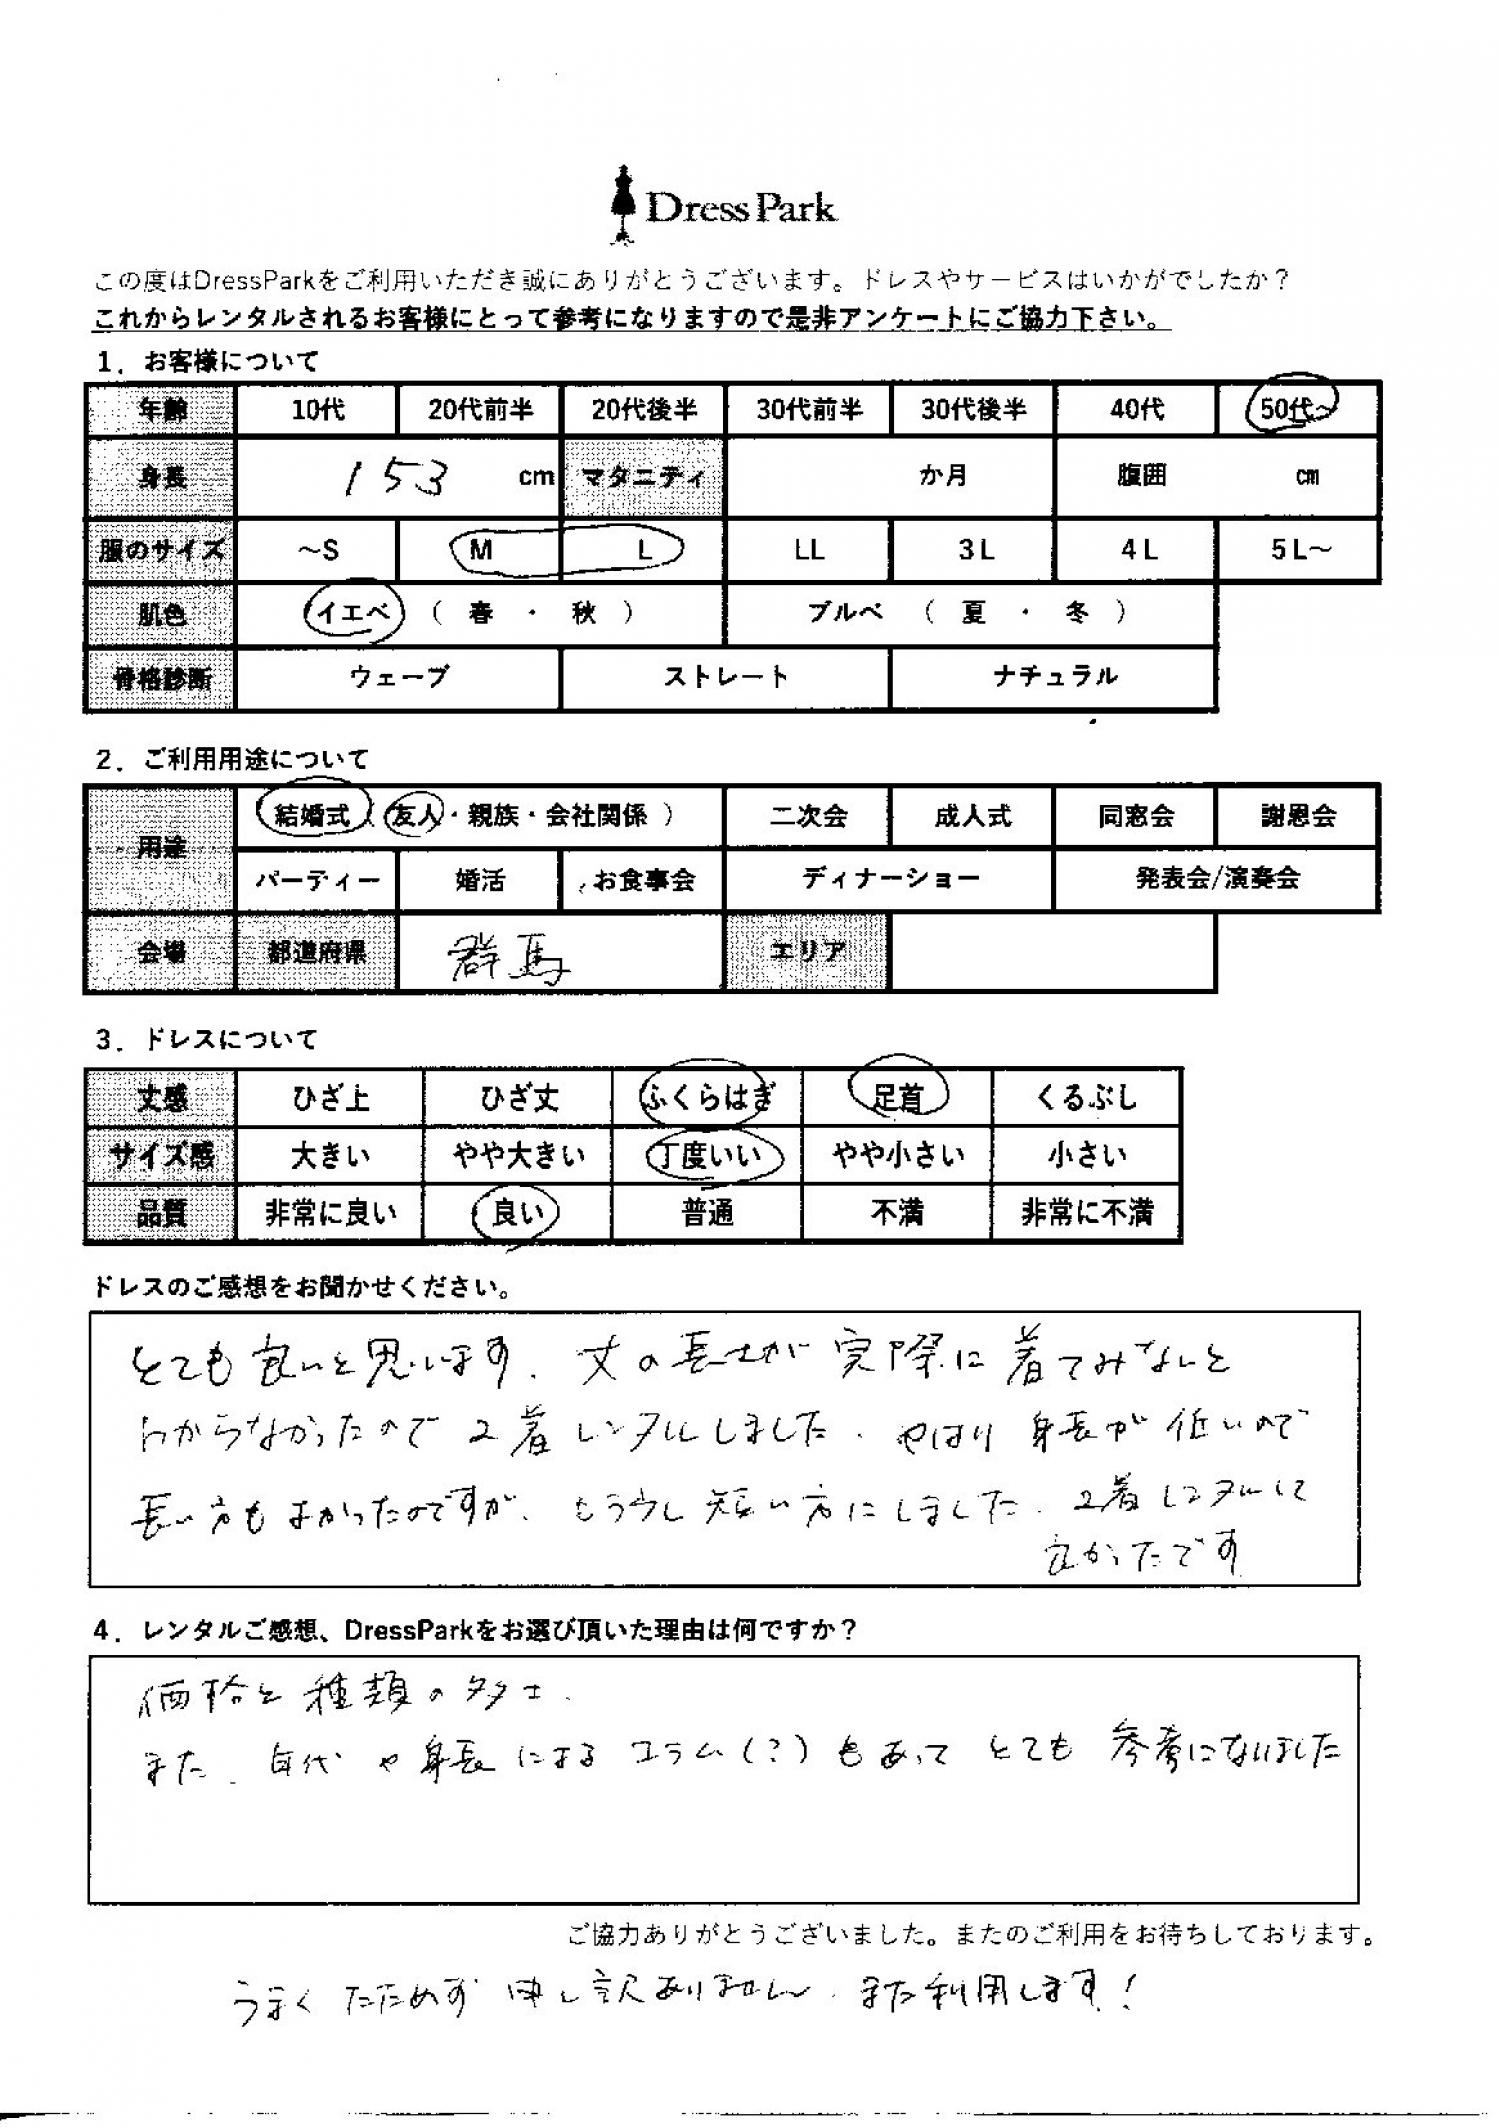 Dress Park
この度はDressParkをご利用いただき誠にありがとうございます。ドレスやサービスはいかがでしたか？
これからレンタルされるお客様にとって参考になりますので是非アンケートにご協力下さい。
1．お客様について
年齢 10代 20代前半 20代後半 30代前半 30代後半 40代 50代～
身長 153 cm マタニティ か月 腹囲 cm
服のサイズ ～S M L LL 3L 4L 5L～
肌色 イエベ（ 春 ・ 秋 ） ブルベ（ 夏 ・ 冬 ）
骨格診断 ウェーブ ストレート ナチュラル
2．ご利用用途について
用途 結婚式（友人・親族・会社関係 ） 二次会 成人式 同窓会 謝恩会
パーティー 婚活 お食事会 ディナーショー 発表会/演奏会
会場 都道府県 群馬 エリア
3．ドレスについて
丈感 ひざ上 ひざ丈 ふくらはぎ 足首 くるぶし
サイズ感 大きい やや大きい 丁度いい やや小さい 小さい
品質 非常に良い 良い 普通 不満 非常に不満
ドレスのご感想をお聞かせください。
とても良いと思います．丈の長さが実際に着てみないと
わからなかったので2着レンタルしました．やはり身長が低いので
長い方もよかったのですが、もう少し短い方にしました．2着レンタルして
良かったです
4．レンタルご感想、DressParkをお選び頂いた理由は何ですか？
価格と種類の多さ．
また、年代や身長によるコラム(?)もあってとても参考になりました
ご協力ありがとうございました。またのご利用をお待ちしております。
うまくたためず申し訳ありません．また利用します！